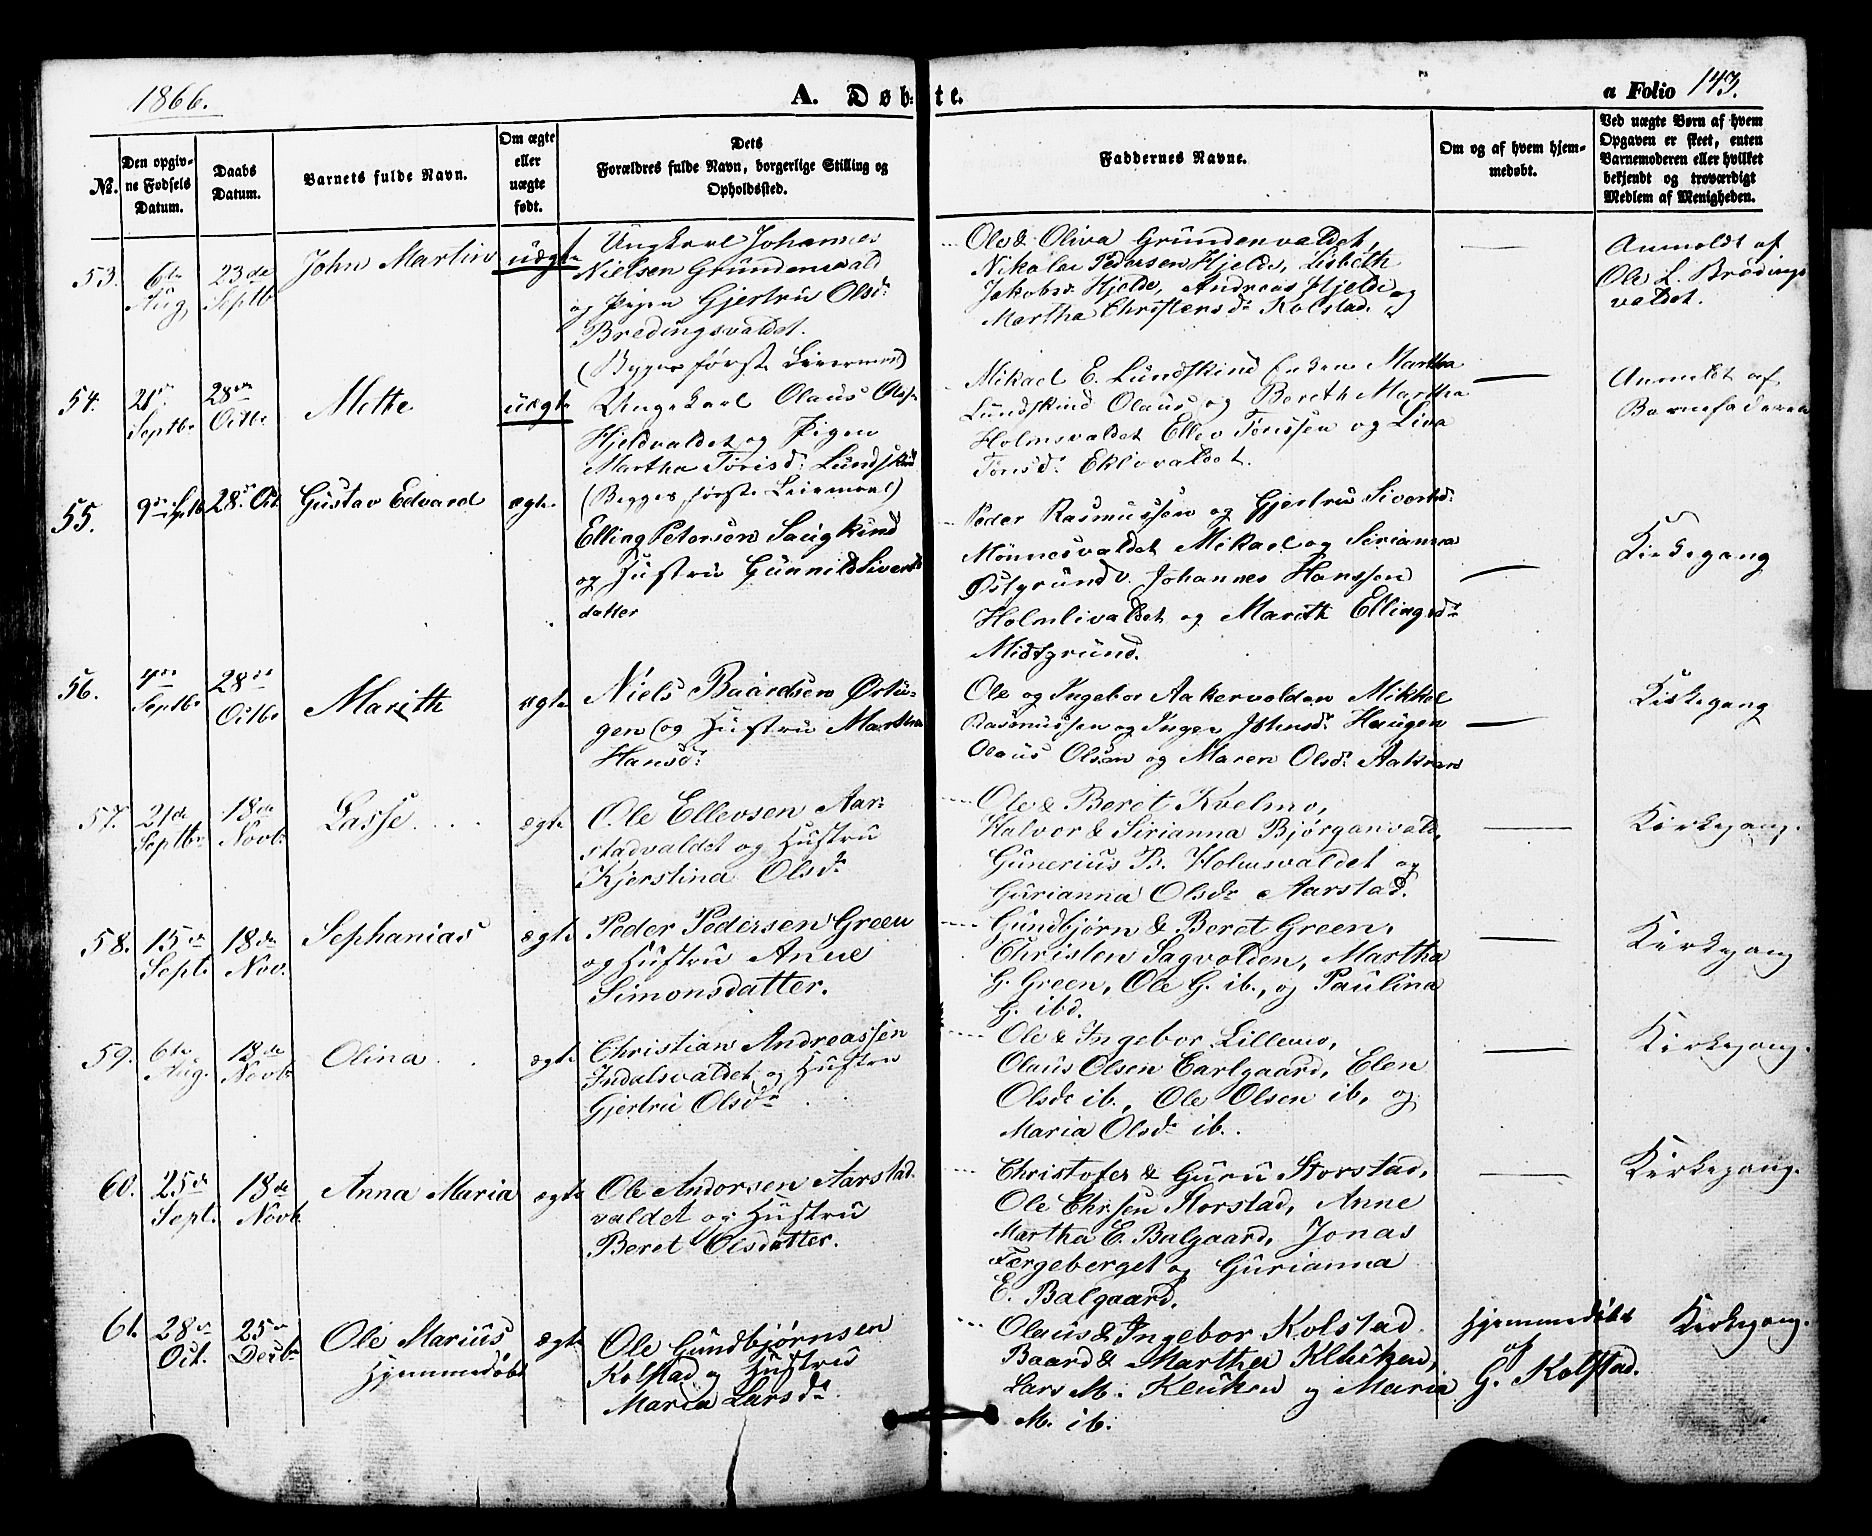 1866.
A. Døb-te.
a Folio 143.
No.
Den opgiv-
ne Fødsels
Datum.
Daabs
Datum.
Barnets fulde Navn.
Om ægte
eller
uægte
født.
Dets
Forældres fulde Navn, borgerlige Stilling og
Opholdssted.
Faddernes Navne.
Om og af hvem hjem-
medøbt.
Ved uægte Børn af hvem
Opgaven er skeet, enten
Barnemoderen eller hvilket
bekjendt og troværdigt
Medlem af Menigheden.
53.
6te
Aug
23de
Septb
John Martin
uægt.
Ungkarl Johannes
Nielsen Grundenvald
og Pigen Gjertru Olsd.
Bredingsvaldet.
(Begges første Leiermaal)
Ole & Oliva Grundenvaldet,
Nikolai Pedersen Hjelde, Lisbeth
Jakobsd. Hjelde, Andreas Hjelde og
Martha Christensd. Kolstad.
Anmeldt af
Ole L. Brødings
valdet.
54.
21
Septbr
28de
Octbr
Mette
uægt.
Ungekarl Olaus Olss.
Hjeldvaldet og Pigen
Martha Torisd. Lundskind
(Begges første Leiermaal)
Mikael E. Lundskind Martha
Lundskind Olaus og Bereth Martha
Holmsvaldet Ellev Tonssen og Liva
Tonsd. Eklovaldet.
Anmeldt af
Barnefaderen
55.
9de Septb
28. Oct.
Gustav Edvard
ægte
Elling Petersen Saugkind
og Hustru Gunnild Siverts
datter
Peder Rasmussen og Gjertru Sivertsd.
Mønnesvaldet Mikael og Sirianna
Østgrund. Johannes Hanssen
Holmlivaldet og Marith Ellingsd.
Midtgrund.
Kirkegang
56.
Septbr
28de
Octbr
Marith
ægte
Niels Baardsen Ørtu-
gen og Hustru Martha
Hansd.
Ole og Ingebor Aakervolden Mikkel
Rasmussen og Inger Johnsd. Haugen
Olaus Olsen og Maren Olsd. Aakran
Kirkegang
57.
21de
Septbr
18de
Novb.
Lasse
ægte
Ole Ellevsen Aar-
stadvaldet og Hustru
Kjerstina Olsd.
Ole & Beret Kvelmo,
Halvor & Sirianna Bjørganvald,
Gunerius B. Holmsvaldet og
Gurianna Olsd. Aarstad.
Kirkegang.
58.
15de
Sept.
18de
Nov.
Sephanias
ægte
Peder Pedersen Green
og Hustru Anne
Simonsdatter.
Gundbjørn & Beret Green,
Christen Sagvolden, Martha
G. Green, Ole G. ib., og Paulina
G. ibd.
Kirkegang
59.
6te
Aug.
18de
Novb.
Olina
ægte
Christian Andreassen
Indalsvaldet og Hustru
Gjertru Olsd.
Ole & Ingebor Lillemo,
Olaus Olsen Carlgaard, Elen
Olsd. ib., Ole Olsen ib. og
Maria Olsd. ib.
Kirkegang.
60.
25de
Sept.
18de
Novb.
Anna Maria
ægte
Ole Andorsen Aarstad-
valdet og Hustru
Beret Olsdatter.
Christofer & Guru Storstad,
Ole Chrsen Storstad, Anne
Martha E. Balgaard, Jonas
Færgeberget og Gurianna
E. Balgaard.
Kirkegang.
61.
28de
Oct.
25de
Decbr
Ole Marius
Hjemmedøbt
ægte
Ole Gundbjørnsen
Kolstad og Hustru
Maria Larsd.
Olaus & Ingebor Kolstad
Baard & Marthea Kluken,
Lars M. Kluken og Maria
M. ib.
Hjemmedøbt
af
G. Kolstad.
Kirkegang.